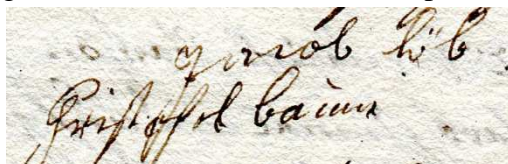 Jacob Löb
Christofel baum